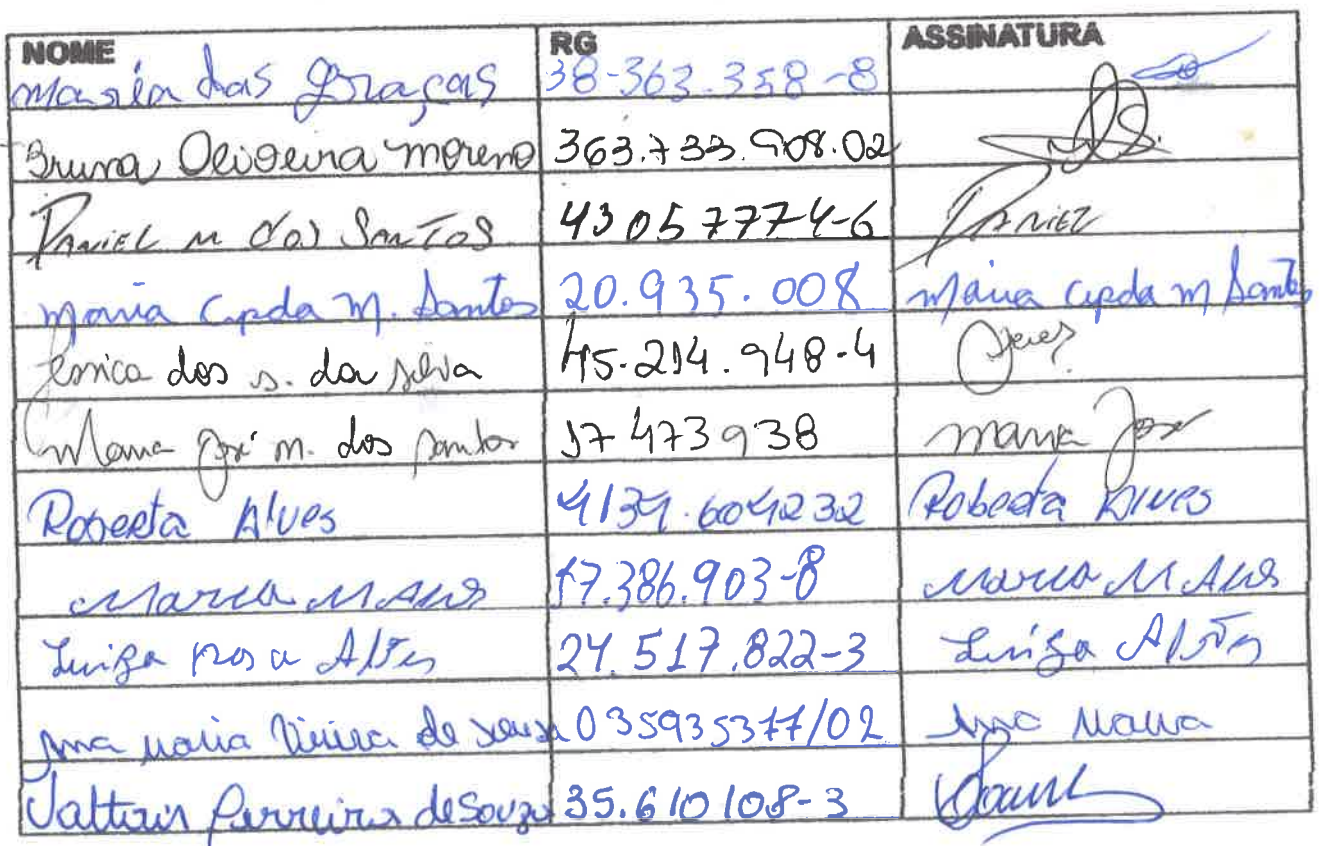 NOME RG ASSINATURA
Maria das Graças 38-363.358-8
Bruna Oliveira moreno 363.733.908.02
DANIEL M dos SANTOS 43057774-6 DANIEL
Maria Cpda M. Santos 20.935.008 Maria Cpda M Santos
Jessica dos s. da silva 45.214.948-4
Maria José m. dos santos 17 473 938 Maria José
Roberta Alves 4134.6042232 Roberta Alves
Marcia M Alves 17.386.903-8 Marcia M Alves
Luiza rosa Alves 24.517.822-3 Luiza Alves
Ana Maria Vieira de souza 035935377/02 Ana Maria
Valttair Ferreira de Souza 35.610108-3